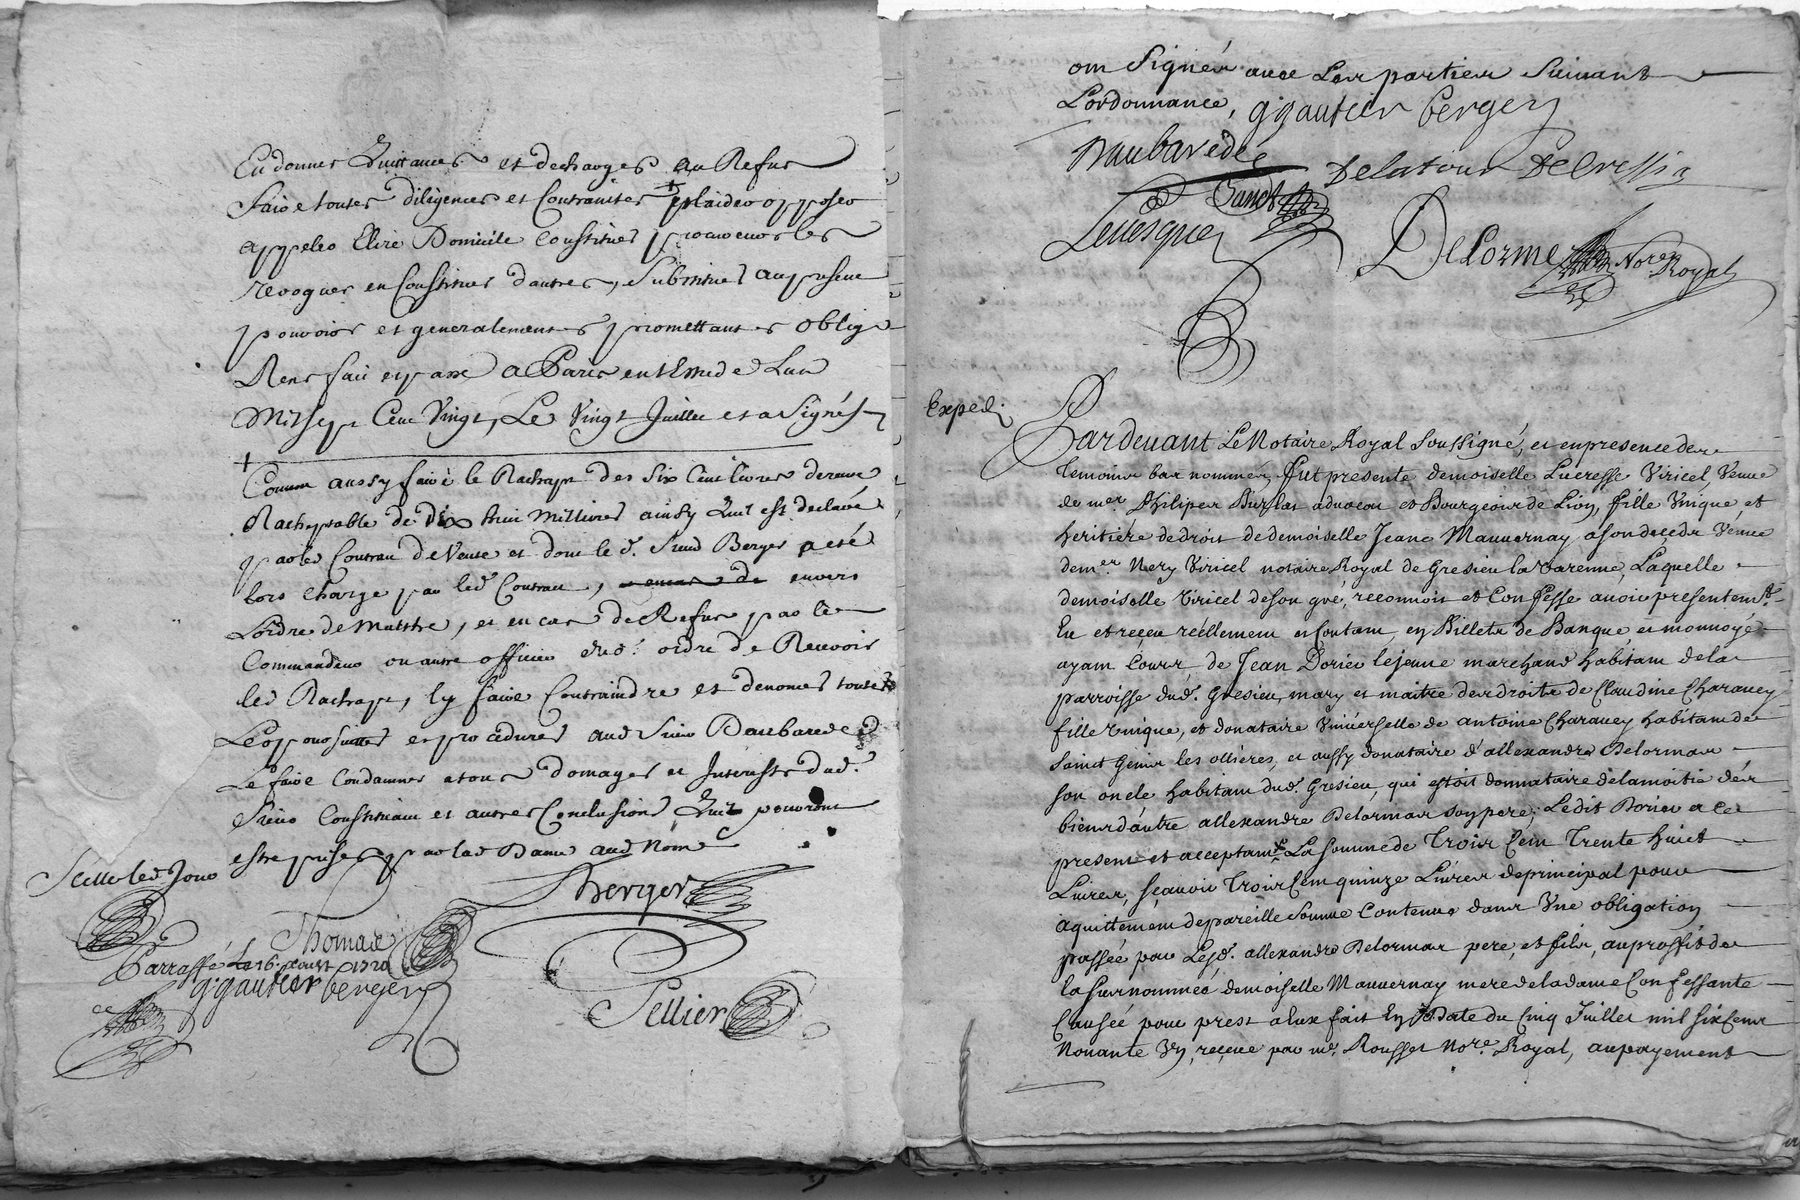 En donner Quittances et decharges au Refus
faire toutes diligences et Contraintes + plaider opposer
appeller Elire Domicile Constituer procureurs les
revoquer en Constituer d'autres, Substituer au present
pouvoir et generalement &c promettant &c oblig.
Renc fait et passé a Paris en l'Etude Lan
Mil Sept Cent Vingt, Le Vingt Juillet et a Signé
+ Comme aussy faire le Rachapt des Six Cent livres de rente
Racheptable de dix huit Mil livres ainsy Quil est declaré
par le Contrau de Vente et dont le d. Sieur Berger a eté
lors Charge par led Contrau, envers
L'ordre de Malthe, et en cas de Refus par le
Commandeur ou autre officier dud. ordre de Recevoir
led Rachapt, ly faire Contraindre et denoncer toutes
Les poursuittes et procedures aud Sieur Daubarede
Le faire Condamner a tous Domages et Interests dud.
Sieur Constituant et autres Conclusions Quil pouront
estre prises par lad Dame aud Nom
Scellé led Jour
Berger
Thomas
Parraffé Le 16. aoust 1720
g. gautier berger
Sellier
om Signés avec Les parties Suivant
Lordonnance, g gautier berger
Daubarede
Delatour Delressia
Sanct
Levesque
Delorme Nore Royal
Expedi
Pardevant Le Notaire Royal Soussigné, et en presence des
temoins bas nommés, Fut presente demoiselle Lucresse Viricel, Veuve
de mer. Philiper Burlat advocat et Bourgeois de Lion, fille Unique et
heritiere de droit de demoiselle Jeane Mauvernay a son deceds Veuve
de mer Nery Viricel notaire Royal de Gresieu la Varenne, Laquelle
demoiselle Viricel de son gré, reconnoit et Confesse avoir presentemt.
Eu et reçeu réellement et Contant, en Billets de Banque, et monnoye
ayant Cours, de Jean Dorier le jeune marchand habitant de la
parroisse dud. Gresieu, mary et maitre des droits de Claudine Charavey
fille Unique, et donataire Univérselle de antoine Charavey habitant de
Sainct Genis les ollières, et aussy donataire d'allexandre Delormas
Son oncle habitant dud. Gresieu, qui estoit donnataire de la moitié dés
biens d'autre allexandre Delormas son pere, Ledit Dorier a ce
present et acceptant + La Somme de Trois Cent Trente huict
Livres, sçavoir Trois Cent quinze Livres de principal pour
aquittement de pareille Somme Contenue dans Une obligation
passée par Lesd. allexandre Delormas pere, et fils, au proffit de
la susnommée demoiselle Mauvernay mere de la dame Confessante
Causée pour prest a Eux fait En Date du Cinq Juillet mil six Cent
Nonante Un, reçeue par mr. Rousset Nore. Royal, au payement